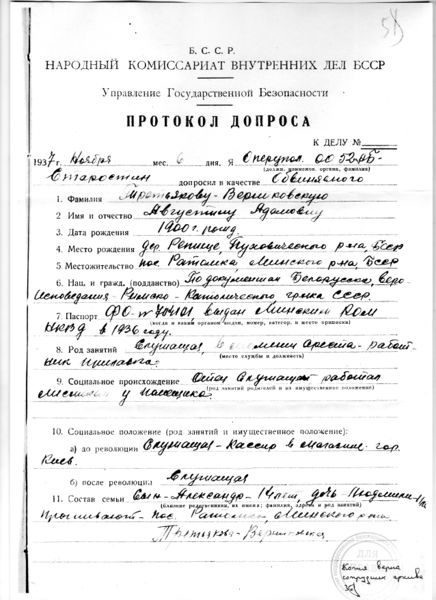 Б. С. С. Р.
НАРОДНЫЙ КОМИССАРИАТ ВНУТРЕННИХ ДЕЛ БССР
Управление Государственной Безопасности
ПРОТОКОЛ ДОПРОСА
К ДЕЛУ №
1937 г. Ноября мес. 6 дня. Я Оперупол. ОО 52 АБ
(должн. наименов. органа, фамилия)
Старостин допросил в качестве Обвиняемого
1. Фамилия Третьякову-Вершковскую
2. Имя и отчество Августину Адамовну
3. Дата рождения 1900 г. рожд.
4. Место рождения дер. Пуховического р-на, БССР
5. Местожительство пос. Ратомка Минского р-на, БССР
6. Нац. и гражд. (подданство) По документам Белорусска, веро-
исповедания - Римско-Католического гр-ка СССР.
7. Паспорт выдан Минским
(когда и каким органом выдан, номер, категор. и место приписки)
НКВД в 1936 году.
8. Род занятий Служащая, в момент ареста - работ-
(место службы и должность)
ник прилавка
9. Социальное происхождение Отец Служащий работал
(род занятий родителей и их имущественное положение)
лесником у помещика
10. Социальное положение (род занятий и имущественное положение):
а) до революции Служащая - Кассир в магазине гор.
Киев.
б) после революции Служащая
11. Состав семьи Сын - Александр - 14 лет, дочь - Людмила
(близкие родственники, их имена; фамилии, адреса и род занятий)
Проживают - пос. Ратомка, Минского р-на
Третьякова-Вершковск
Копия верна
сотрудник архива